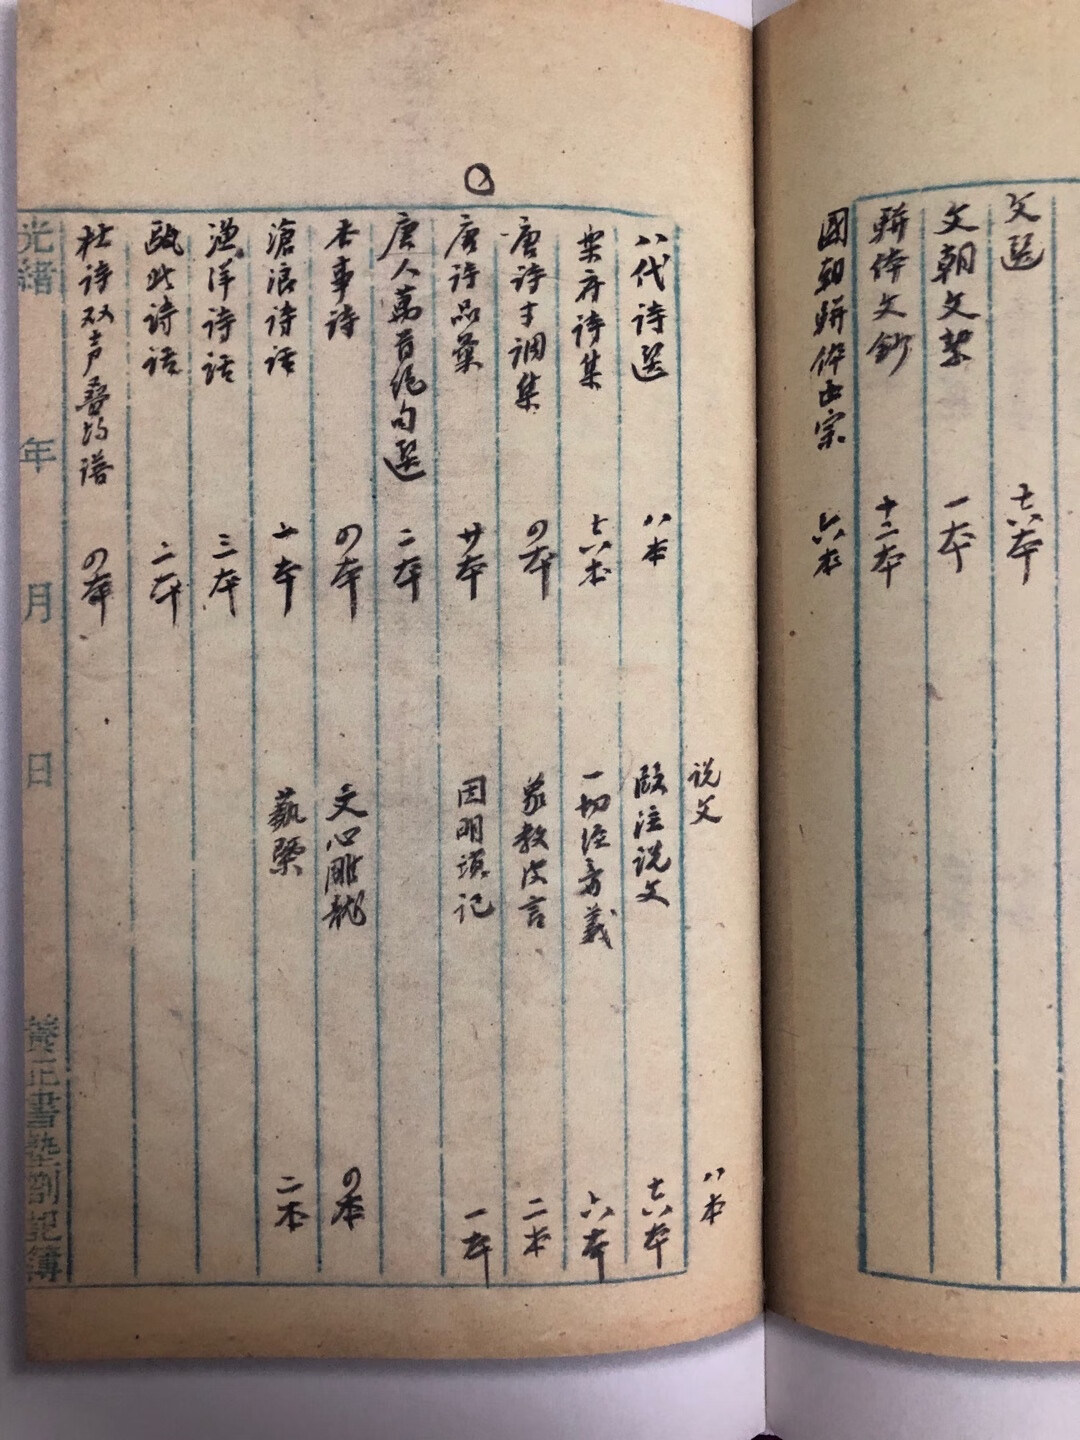 文选 十六本
文朝文絜 一本
骈体文钞 十二本
國朝駢体正宗 六本
说文 八本
八代诗选 八本
段注说文 十六本
乐府诗集 十六本
一切经音義 六本
唐诗才调集 四本
象教皮言 二本
唐诗品彙 廿本
因明 记 一本
唐人萬首绝句选 二本
本事诗 四本
文心雕龙 四本
滄浪诗话 一本
藝槩 二本
渔洋诗话 三本
瓯北诗话 二本
杜诗双声叠韵谱 四本
光緒 年 月 日 養正書塾劄記簿